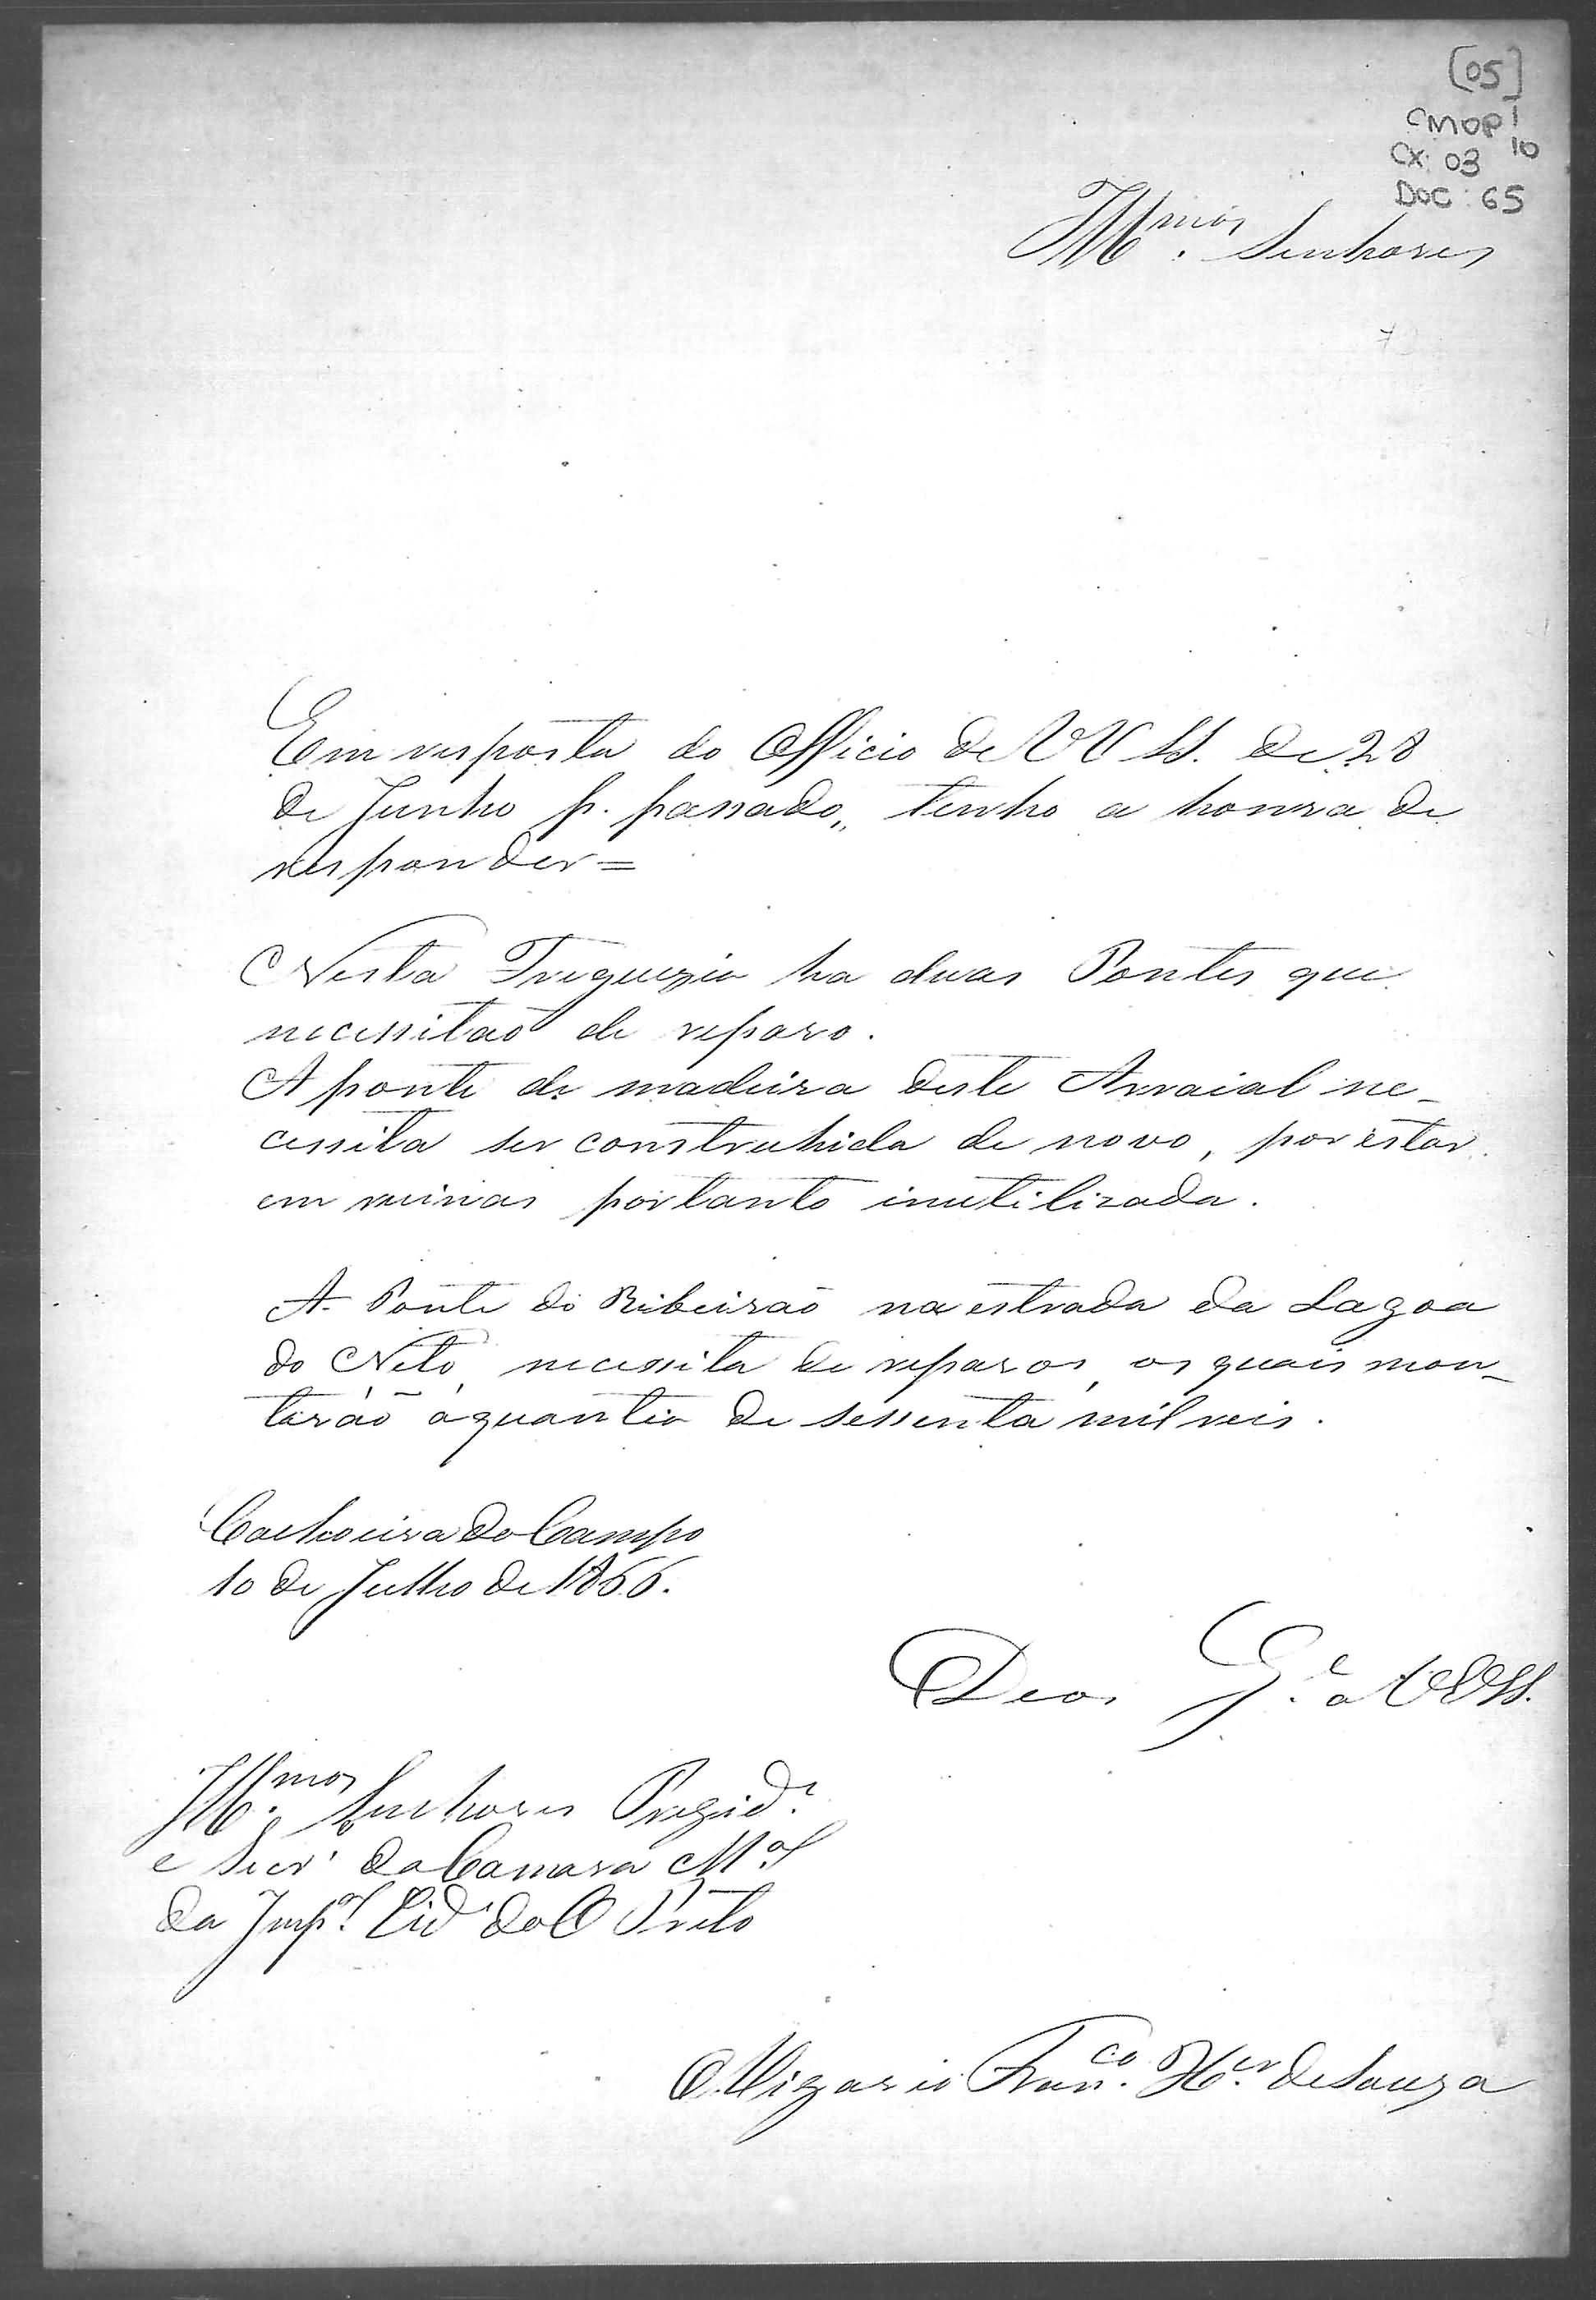 [05]
CMOP 1
CX: 03 10
DOC: 65
Illmos. Senhores
Em resposta do Officio de VV SS. de 28
de Junho p. passado,, tenho a honra de
responder=
Nesta Freguezia ha duas Pontes que
necessitão de reparo.
A ponte de madeira deste Arraial ne-
cessita ser construhida de novo, por estar
em ruinas portanto inutilizada.
A Ponte do Ribeirão na estrada da Lagoa
do Neto, necessita de reparos, os quais mon-
tarão á quantia de sessenta mil reis.
Cachoeira do Campo
10 de Julho de 1866.
Deos G.e a VVSS.
Illmos. Senhores Prezid.e
e Secr. da Camara M.al
da Imp.al Cid.e do O Preto
O Vigario Fran.co de Souza